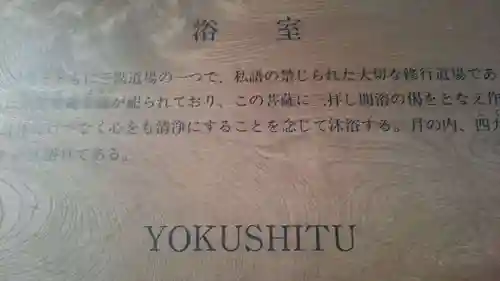 浴室
道場の一つで、私語の禁じられた大切な修行道場であ
が祀られており、この菩薩に三拝し開浴の偈をとなえ作
心をも清浄にすることを念じて沐浴する。月の内、四九
浴日である。
YOKUSHITU